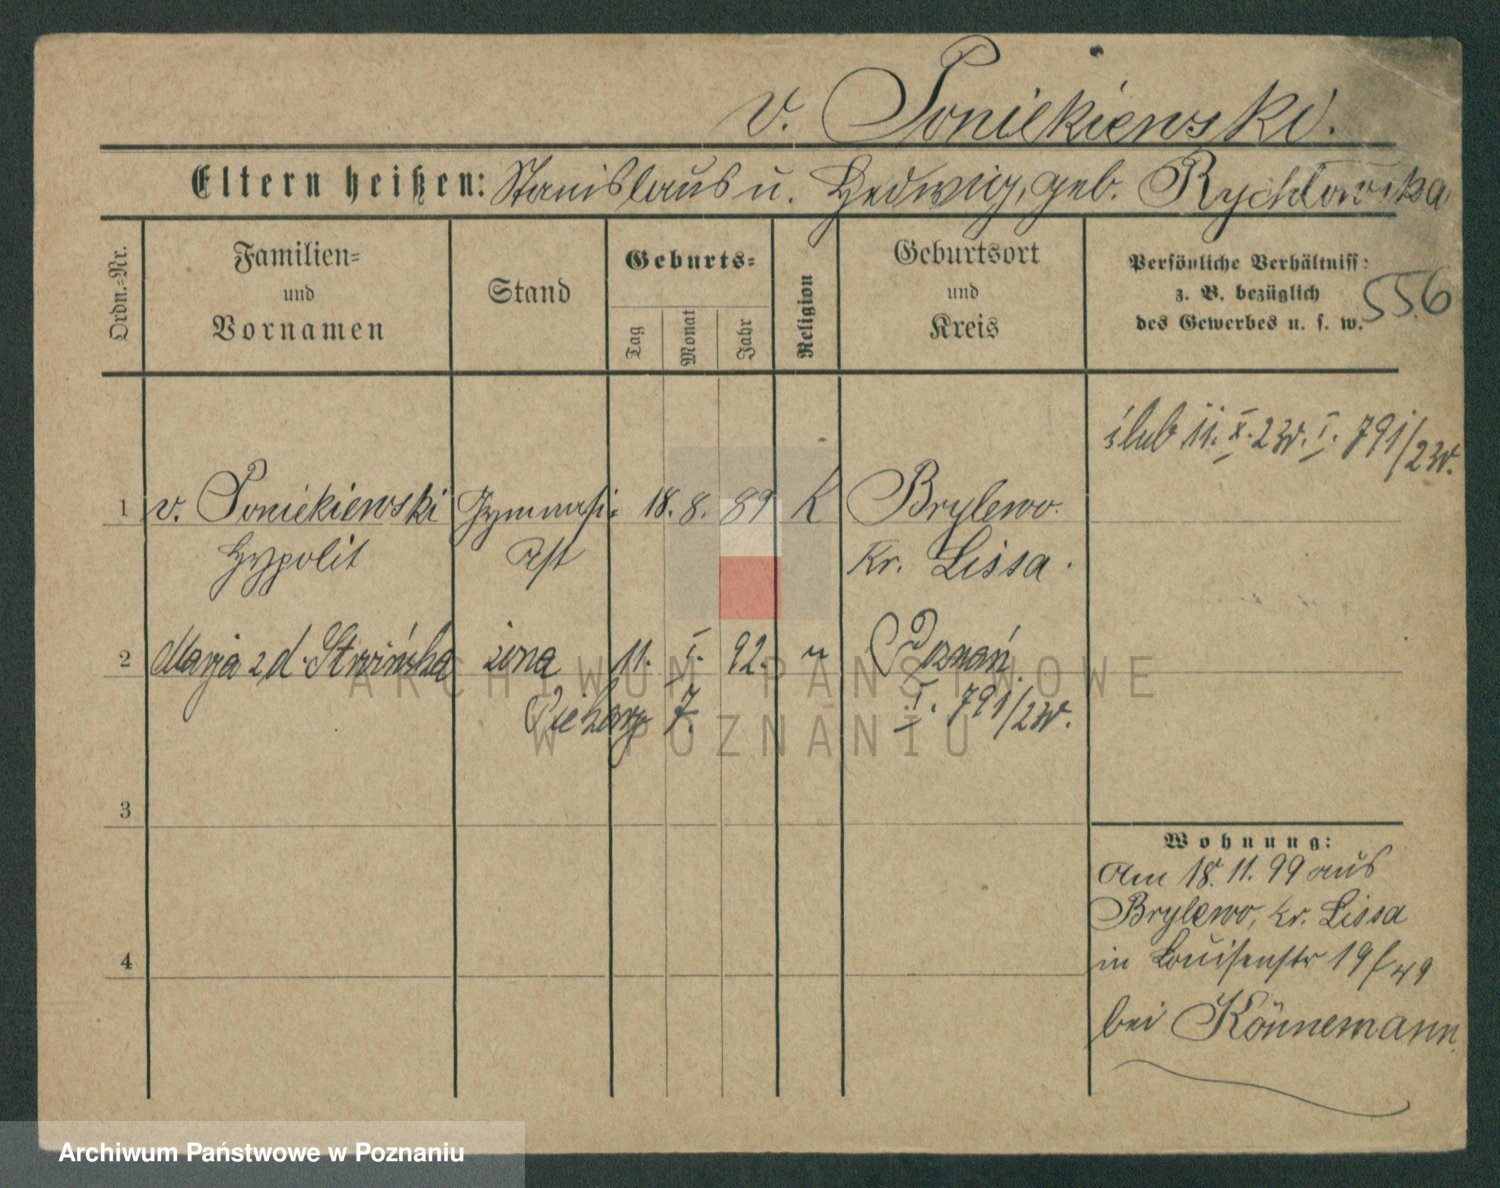 v. Poniekiewski.
Eltern heißen: Stanislaus u. Hedwig, geb. Rychłowska
Ordn.-Nr.
Familien-
und
Vornamen
Stand
Geburts-
Tag
Monat
Jahr
Religion
Geburtsort
und
Kreis
Persönliche Verhältniss:
z. B. bezüglich
des Gewerbes u. s. w.
556
ślub 11. X. 23r. I. 791/23r.
1 v. Poniekiewski Gymnasi- 18. 8. 89 K Brylewo
Hypolit ast Kr. Lissa.
2 Marja z d. żona 11. I. 92. " Poznań
Piekary 7. I. 791/23r.
3
4
Wohnung:
Am 18. 11. 99 aus
Brylewo, Kr. Lissa
in Louisenstr 19
bei Könnemann
ARCHIWUM PAŃSTWOWE
W POZNANIU
Archiwum Państwowe w Poznaniu